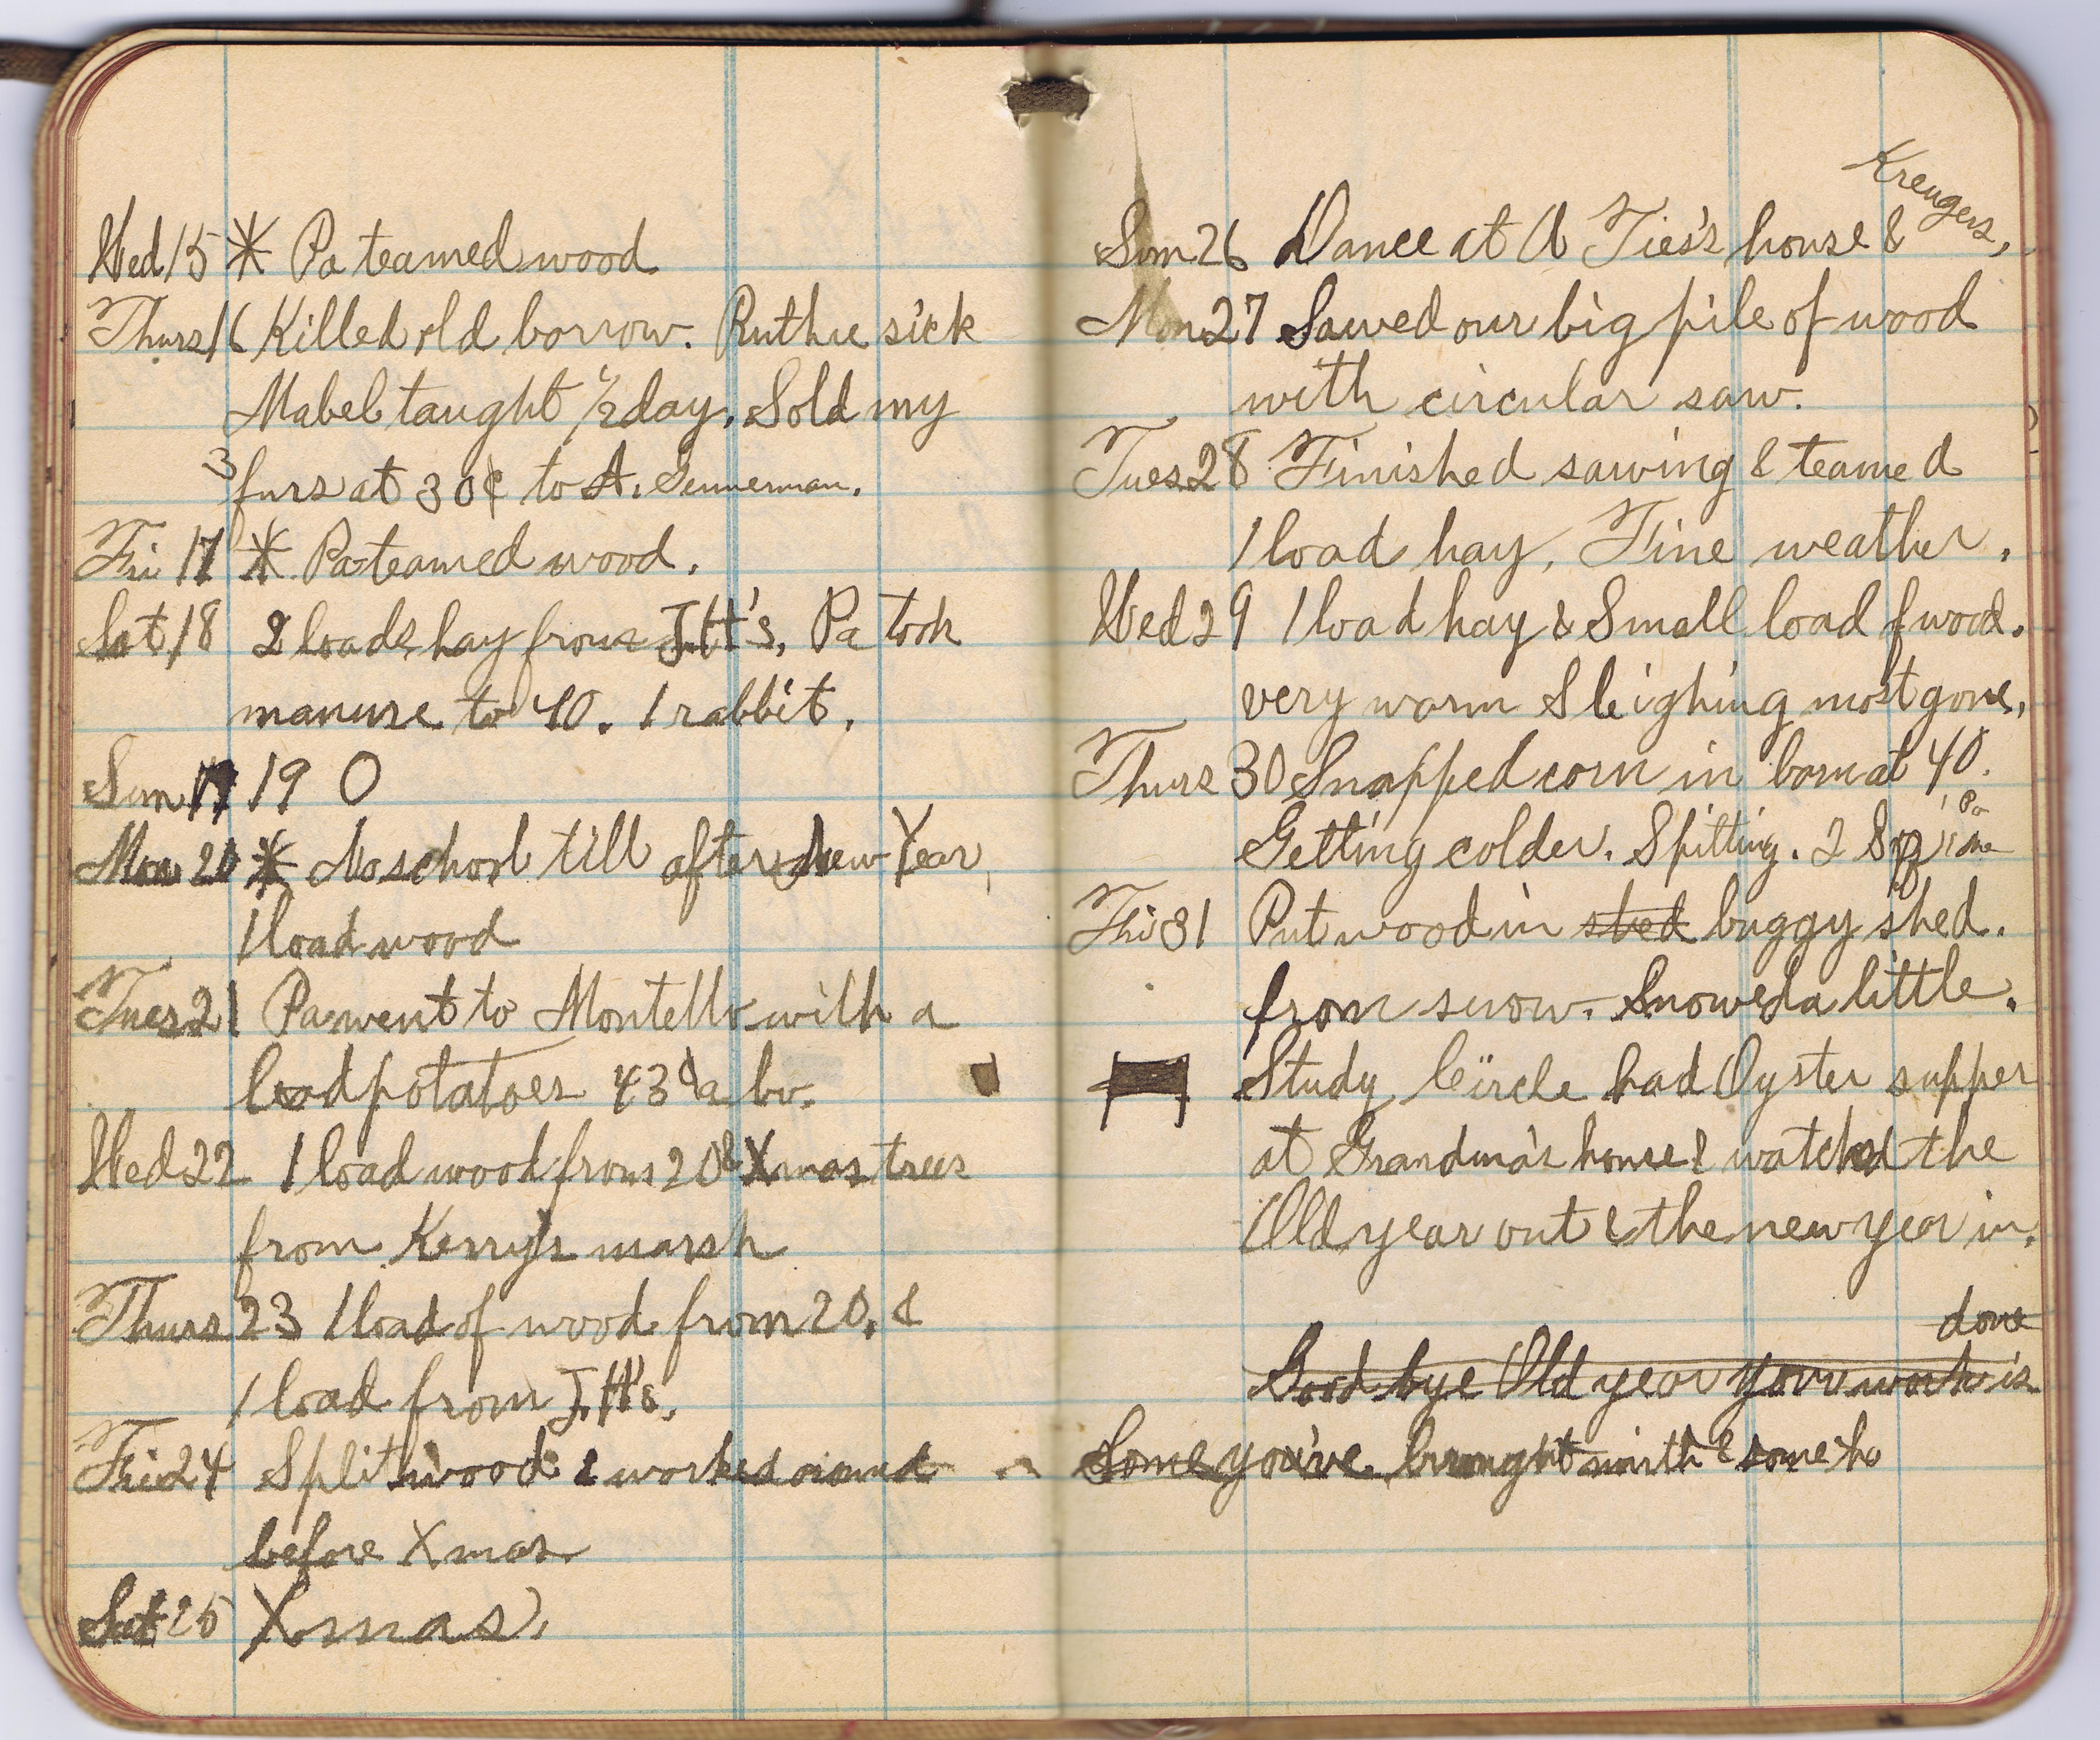 Wed 15 * Pa teamed wood.
Thurs 16 Killed old borrow. Ruthie sick
Mabel taught 1/2 day. Sold my
3
furs at 30¢ to A.
Fri 17 * Pa teamed wood.
Sat 18 2 loads hay from J.H's. Pa took
manure to 40. 1 rabbit.
Sun 19 0
Mon 20 * No school till after New Year,
1 load wood
Tues 21 Pa went to Montello with a
load potatoes 43¢ a bu.
Wed 22 1 load wood from 20 & Xmas trees
from Kerry's marsh
Thurs 23 1 load of wood from 20. &
1 load from J.H's.
Fri 24 Split wood & worked around
before Xmas.
Sat 25 Xmas.
Kreugers,
Sun 26 Dance at A Ties's house &
Mon 27 Sawed our big pile of wood
with circular saw.
Tues 28 Finished sawing & teamed
1 load hay. Fine weather.
Wed 29 1 load hay & Small load f wood.
very warm Sleighing most gone.
Thurs 30 Snapped corn in barn at 40.
1 Pa
Getting colder. Spitting. 2 1 me
Fri 31 Put wood in shed buggy shed.
from snow. Snowed a little.
Study Circle had Oyster supper
at Grandma's house & watched the
Old year out & the new year in.
done
Good bye Old year your work is
Some you've brought mirth & some ha